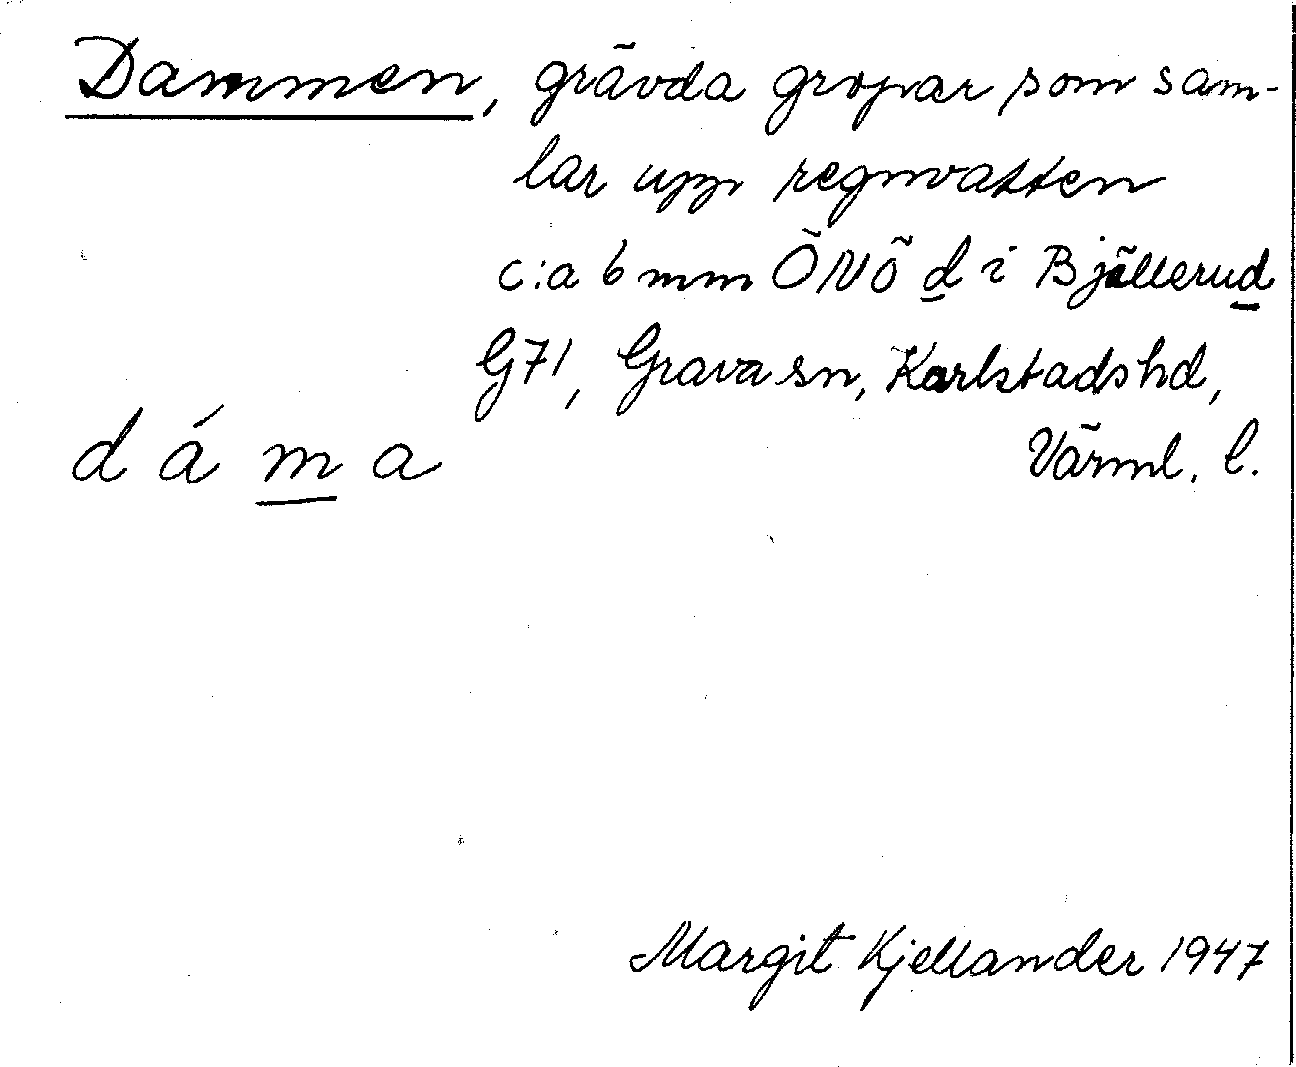 Dammen, grävda gropar som sam-
lar upp regnvatten
c:a 6 mm ÖNÖ d i Bjällerud
G71, Grava sn, Karlstads hd,
dáma Värml. l.
Margit Kjellander 1947